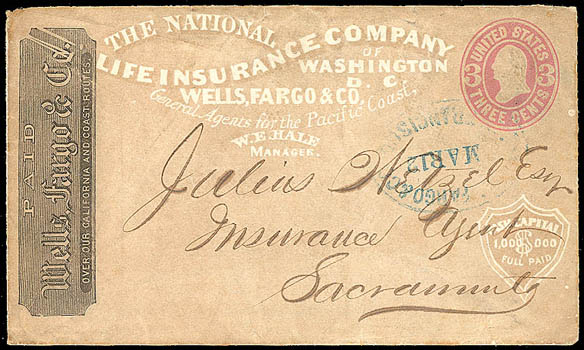 PAID
Wells, Fargo & Co.
OVER OUR CALIFORNIA AND COAST ROUTES.
THE NATIONAL
LIFE INSURANCE COMPANY
OF
WASHINGTON
D. C.
WELLS, FARGO & CO.
General Agents for the Pacific Coast,
W. E. HALE
MANAGER.
UNITED STATES
3 3
THREE CENTS
MAR 12
FARGO & CO
Julius Esq
Insurance Agent
Sacramento
CAPITAL
$
1,000,000
FULL PAID